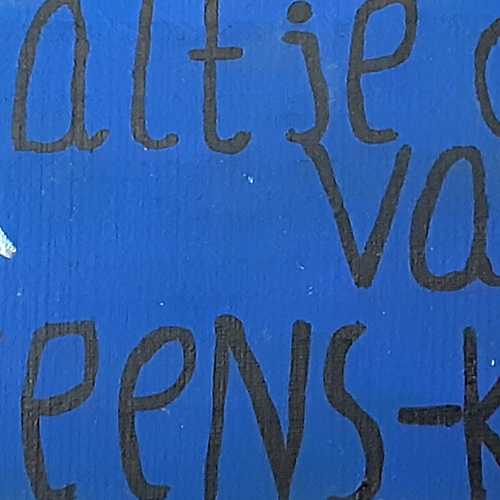 altje
va
eens-k